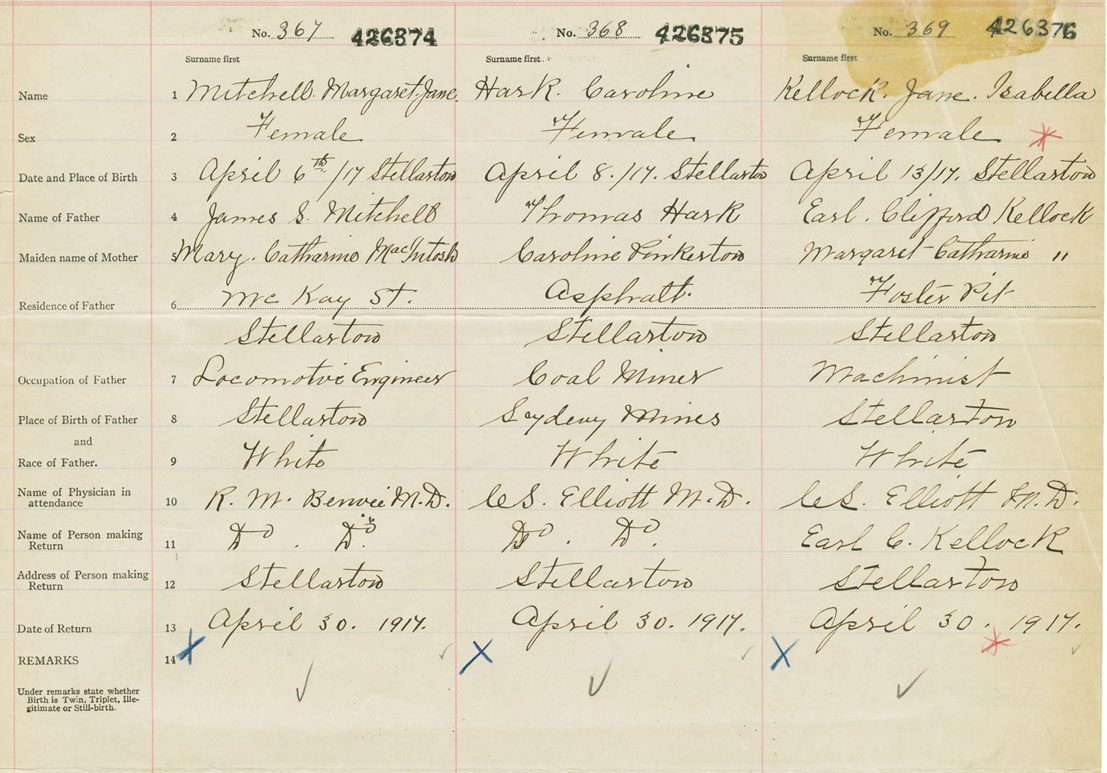 No. 367 426374 No. 368 426375 No. 369 426376
Surname first Surname first Surname first
Name 1 Mitchell. Margaret Jane. Hark. Caroline Kellock. Jane. Isabella
Sex 2 Female Female Female
Date and Place of Birth 3 April 6th/17 Stellarton April 8./17. Stellarton April 13/17. Stellarton
Name of Father 4 James S. Mitchell Thomas Hark Earl. Clifford Kellock
Maiden name of Mother 5 Mary. Catharine MacIntosh Caroline Pinkerton Margaret Catharine "
Residence of Father 6 McKay St. Asphalt. Foster Pit
Stellarton Stellarton Stellarton
Occupation of Father 7 Locomotive Engineer Coal Miner Machinist
Place of Birth of Father 8 Stellarton Sydeny Mines Stellarton
and
Race of Father. 9 White White White
Name of Physician in
attendance 10 R. M. M.D. C S. Elliott M.D. C S. Elliott M.D.
Name of Person making
Return 11 Do. Do. Do. Do. Earl C. Kellock
Address of Person making
Return 12 Stellarton Stellarton Stellarton
Date of Return 13 April 30. 1917. April 30. 1917. April 30. 1917.
REMARKS 14
Under remarks state whether
Birth is Twin, Triplet, Ille-
gitimate or Still-birth.